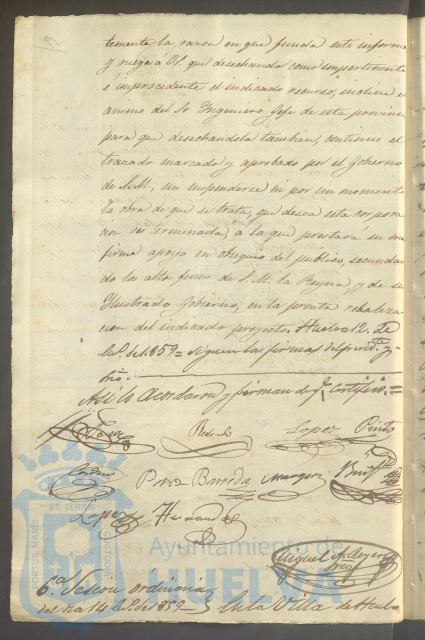 temente la razon en que funda este informe
y ruega á V.S. que desechando como impertinente
é improcedente el indicado recurso, incline el
animo del Sr Ingeniero Gefe de esta provincia
para que desechandola tambien, continue el
trazado marcado y aprobado por el Gobierno
de S.M., sin suspenderse ni por un momento
la obra de que se trata, que desea esta corpora
cion ver terminada, á la que prestará su mas
firme apoyo en obsequio del publico, secundan
do los altos fines de S.M. la Reyna y de su
Ilustrado Gobierno, en la pronta realiza
cion del indicado proyecto. Huelva 12 de
de 1859 = siguen las firmas del
Asi lo acordaron y firman de q. certifico =
Lopez Pinto
Perez Barreda Marquez
Lopez Hernandez
Miguel
6.ª Sesion ordinaria
del dia 14 de 1859 En la Villa de Huelva
PORTUS MARIS ET TERRE CUSTODIA
Ayuntamiento de
HUELVA